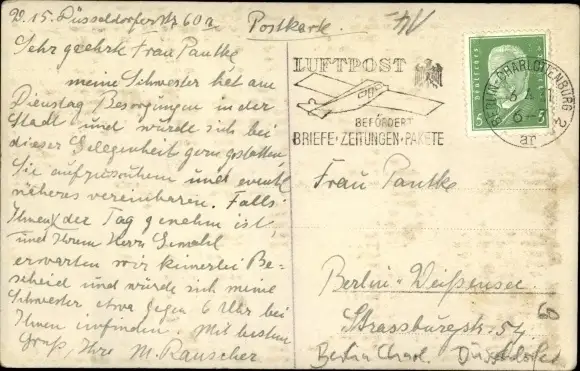 W. 15. Düsseldorferstr 60a
Postkarte.
Sehr geehrte Frau Pautke
meine Schwester hat am
Dienstag Besorgungen in der
Stadt und würde sich bei
dieser Gelegenheit gern gestatten
Sie aufzusuchen und eventl
näheres vereinbaren. Falls
Ihnen der Tag genehm ist
und Ihrem Herrn Gemahl
erwarten wir keinerlei Be-
scheid und würde sich meine
Schwester etwa gegen 6 Uhr bei
Ihnen einfinden. Mit bestem
Gruß, Ihre M. Rauscher
LUFTPOST
BEFÖRDERT
BRIEFE·ZEITUNGEN·PAKETE
BERLIN-CHARLOTTENBURG 2
ar
5 5
Frau Pautke
Berlin-Weißensee
Strassburgstr. 54
Berlin Charl. Düsseldorfer